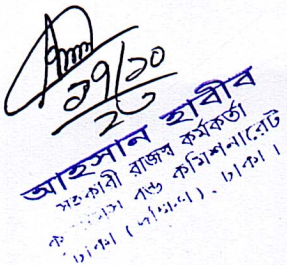 ১৭/১০
২৩
আহসান হাবীব
সহকারী রাজস্ব কর্মকর্তা
বন্ড কমিশনারেট
ঢাকা (দক্ষিণ), ঢাকা।